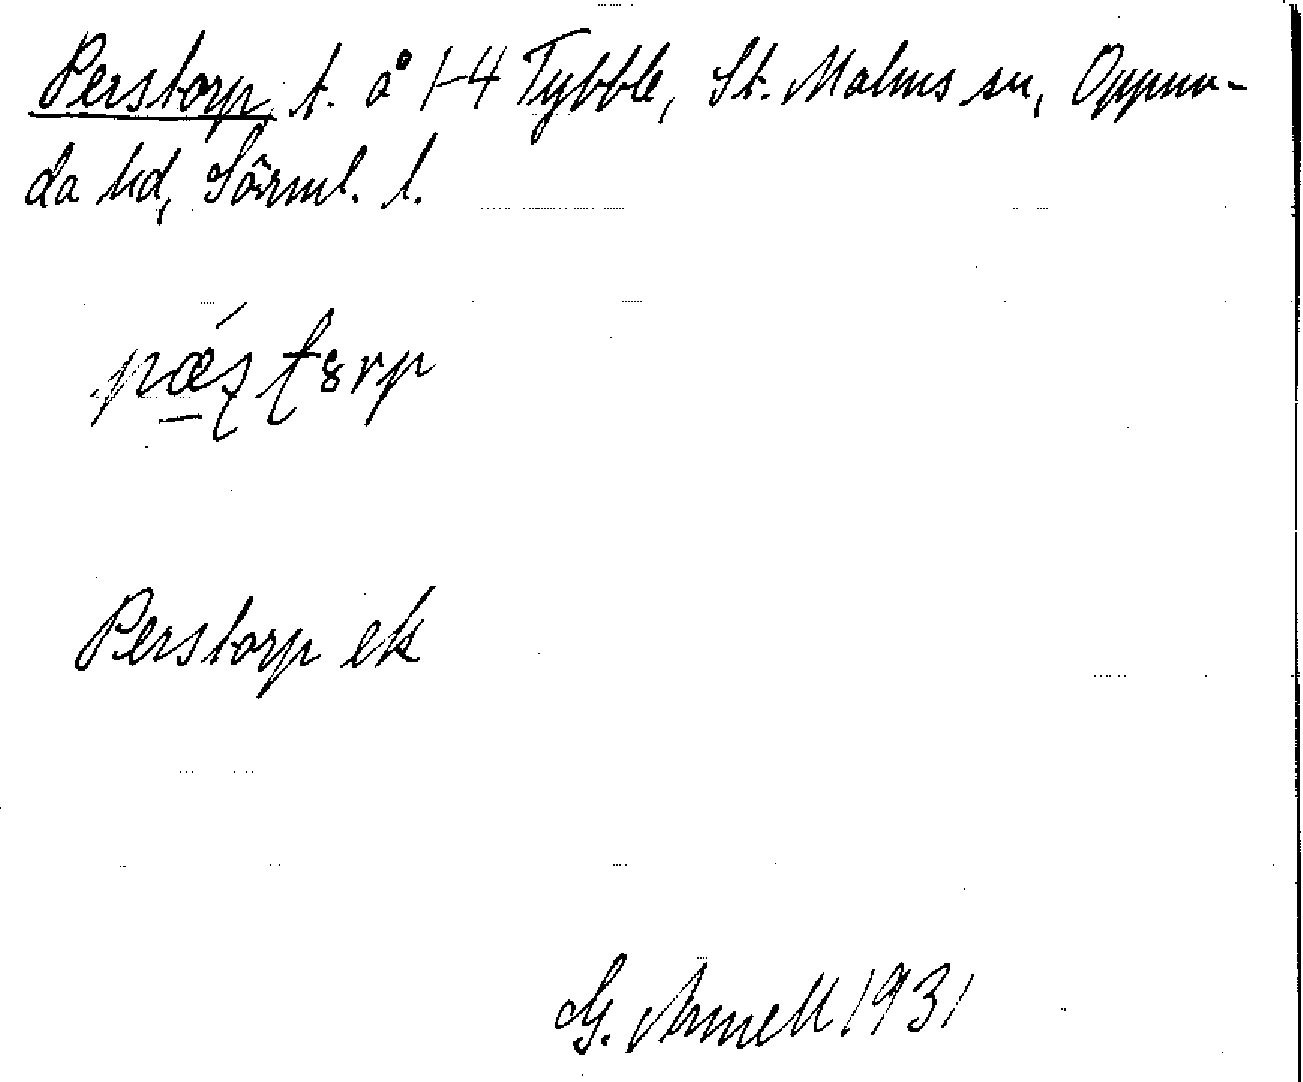 Perstorp t. å 1-4 Tybble, St. Malms sn, Oppun-
da hd, Sörml. l.
pǽʂʈȣrp
Perstorp ek
G. Arnell 1931